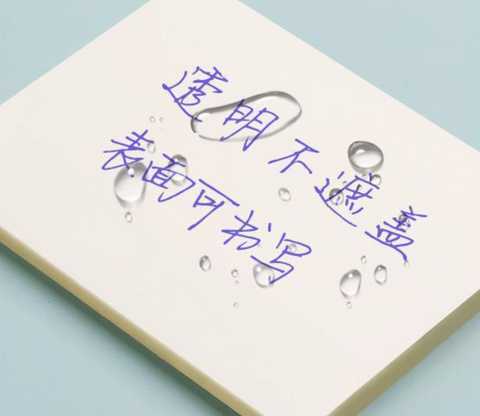 透明不遮盖
表面可书写